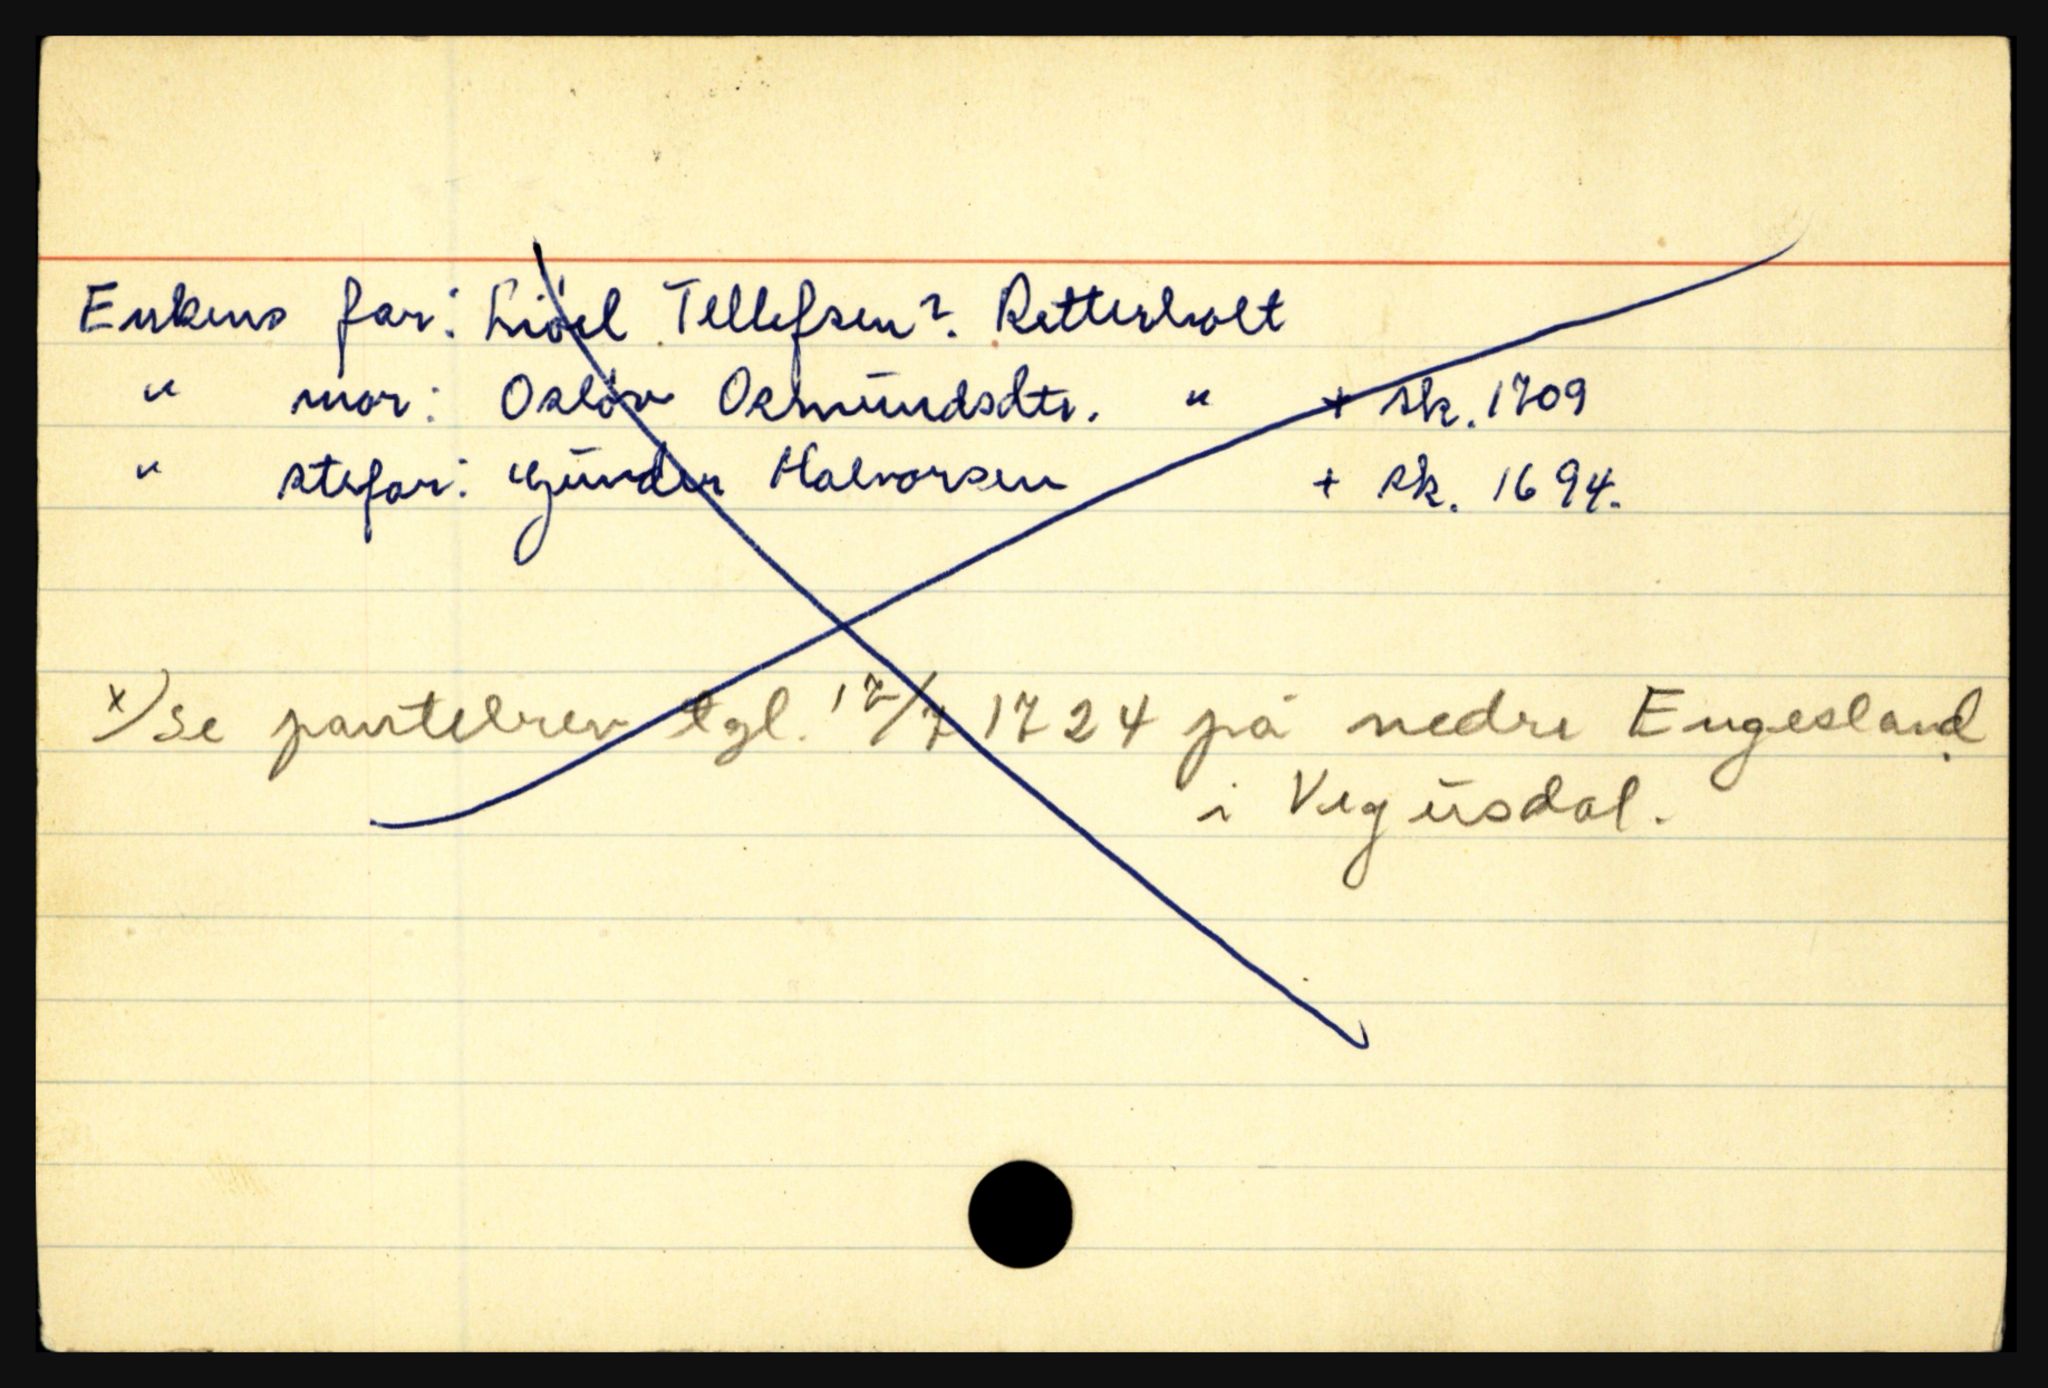 Enkens far: Liöel Tellefsen?. Retterholt
" mor: Oslöv Osmundsdtr. " + sk. 1709
" stefar: Gunder Halvorsen + sk. 1694.
x) Se pantebrev tgl. 17/7 1724 på nedre Engesland
i Vegusdal.